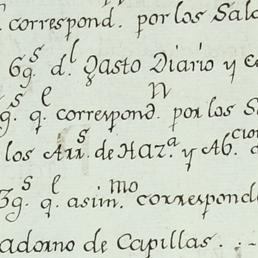 correspond. por los Sala
6g.s d.l Gasto Diario y e
g.s q.l correspond.n por los S
los Arr.s de Haz.a y Ab.cion
3g.s q.l asim.mo corresponde
adorno de Capillas . . -